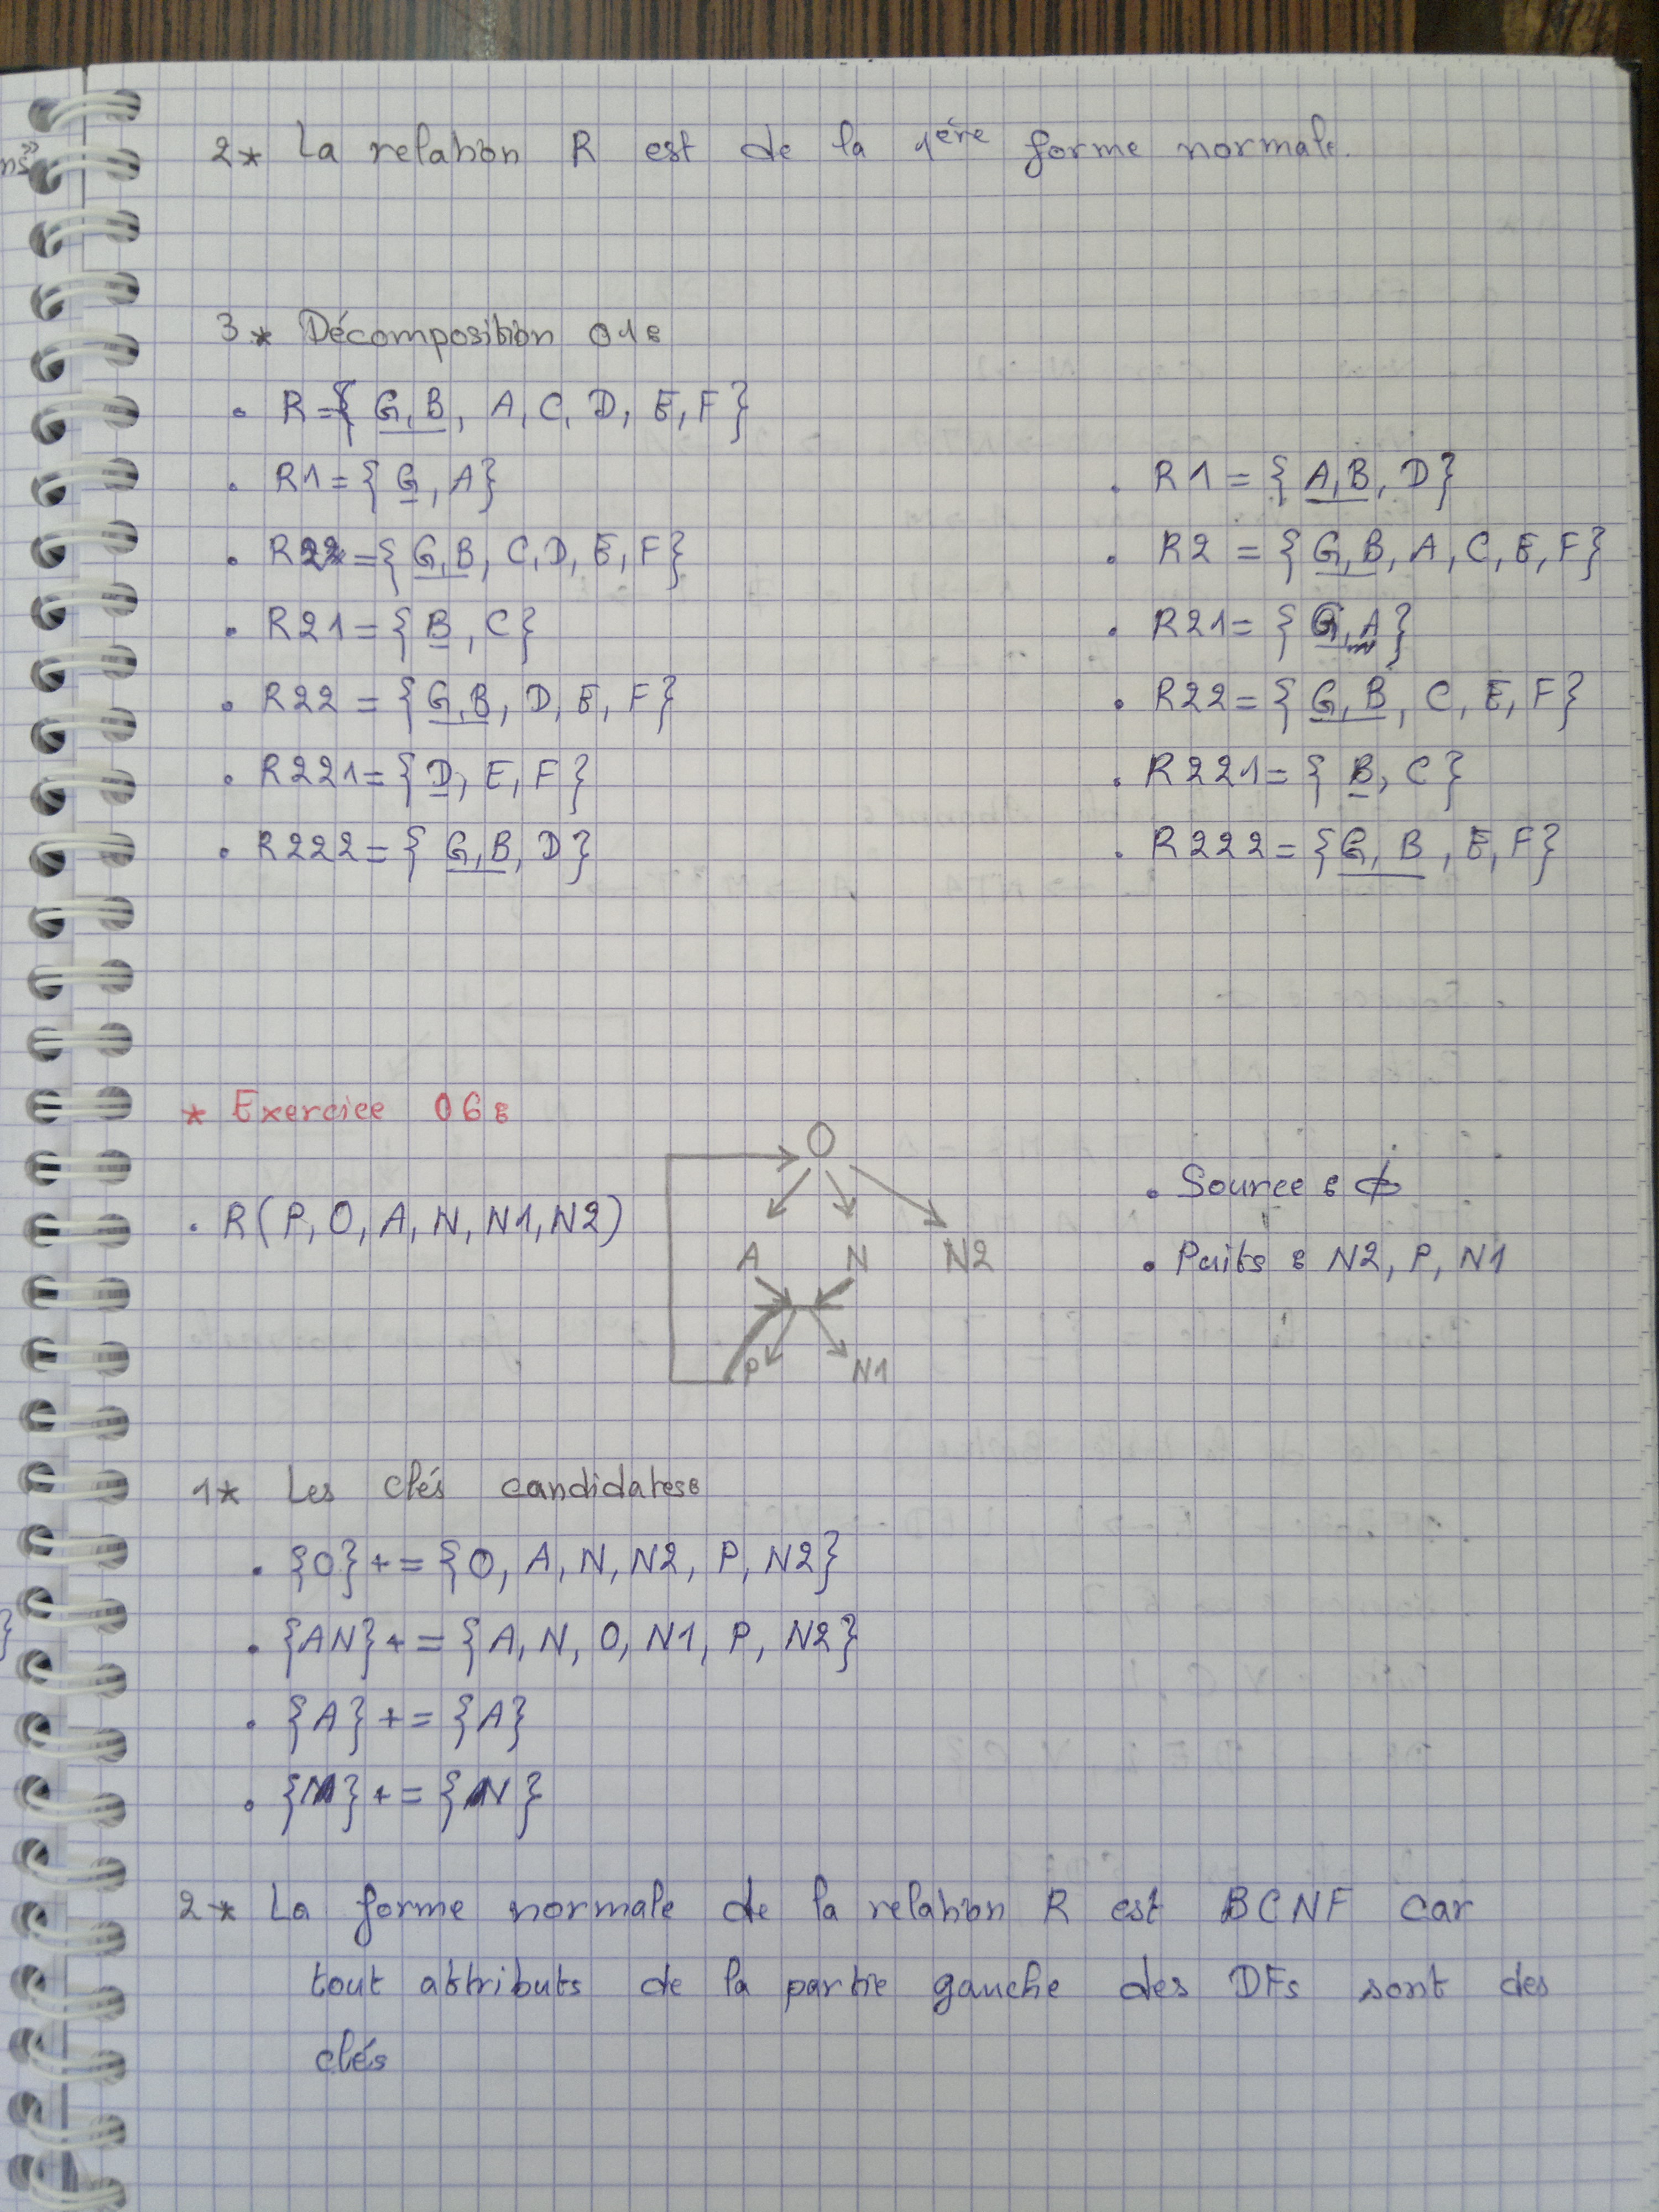 2* La relation R est de la 1ère forme normale.
3* Décomposition 01:
• R={ G,B, A, C, D, E, F}
• R1={ G, A}
• R1={ A,B, D}
• R22={ G,B, C, D, E, F}
• R2={ G,B, A, C, E, F}
• R21={ B, C}
• R21={ G,A}
• R22={ G,B, D, E, F}
• R22={ G,B, C, E, F}
• R221={ D, E, F}
• R221={ B, C}
• R222={ G,B, D}
• R222={ G, B, E, F}
* Exercice 06:
O
• Source : ϕ
• R(P, O, A, N, N1, N2)
A N N2
• Puits : N2, P, N1
P N1
1* Les clés candidates:
• {O}+={O, A, N, N2, P, N2}
• {AN}+={A, N, O, N1, P, N2}
• {A}+={A}
• {N}+={N}
2* La forme normale de la relation R est BCNF car
tout attributs de la partie gauche des DFs sont des
clés